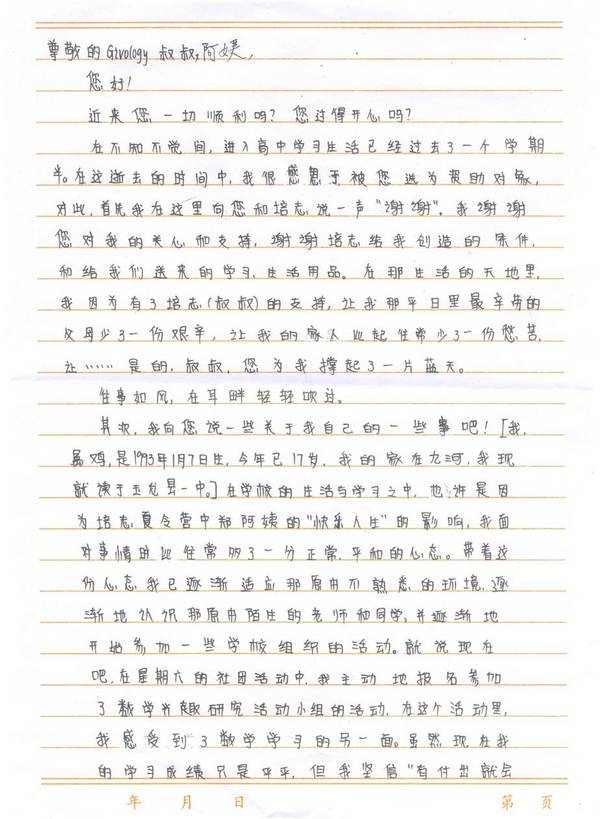 尊敬的Givology 叔叔,阿姨,
您好!
近来您一切顺利吗? 您过得开心吗?
在不知不觉间,进入高中学习生活已经过去了一个学期
半。在这逝去的时间中,我很感恩于被您选为帮助对象,
对此,首先我在这里向您和培志说一声“谢谢”。我谢谢
您对我的关心和支持,谢谢培志给我创造的条件,
和给我们送来的学习、生活用品。在那生活的天地里,
我因为有了培志(叔叔)的支持,让我那平日里最辛劳的
父母少了一份艰辛,让我的家人比起往常少了一份愁苦,
让…… 是的,叔叔,您为我撑起了一片蓝天。
往事如风,在耳畔轻轻吹过。
其次,我向您说一些关于我自己的一些事吧![我,
属鸡,是1993年1月7日生,今年已17岁,我的家在九河,我现
就读于玉龙县一中。]在学校的生活与学习之中,也许是因
为培志夏令营中郑阿姨的“快乐人生”的影响,我面
对事情时比往常多了一分正常、平和的心态。带着这
份心态我已逐渐适应那原由不熟悉的环境,逐
渐地认识那原由陌生的老师和同学,并逐渐地
开始参加一些学校组织的活动。就说现在
吧,在星期六的社团活动中,我主动地报名参加
了数学兴趣研究活动小组的活动,在这个活动里,
我感受到了数学学习的另一面。虽然现在我
的学习成绩只是平平,但我坚信“有付出就会
年 月 日 第 页